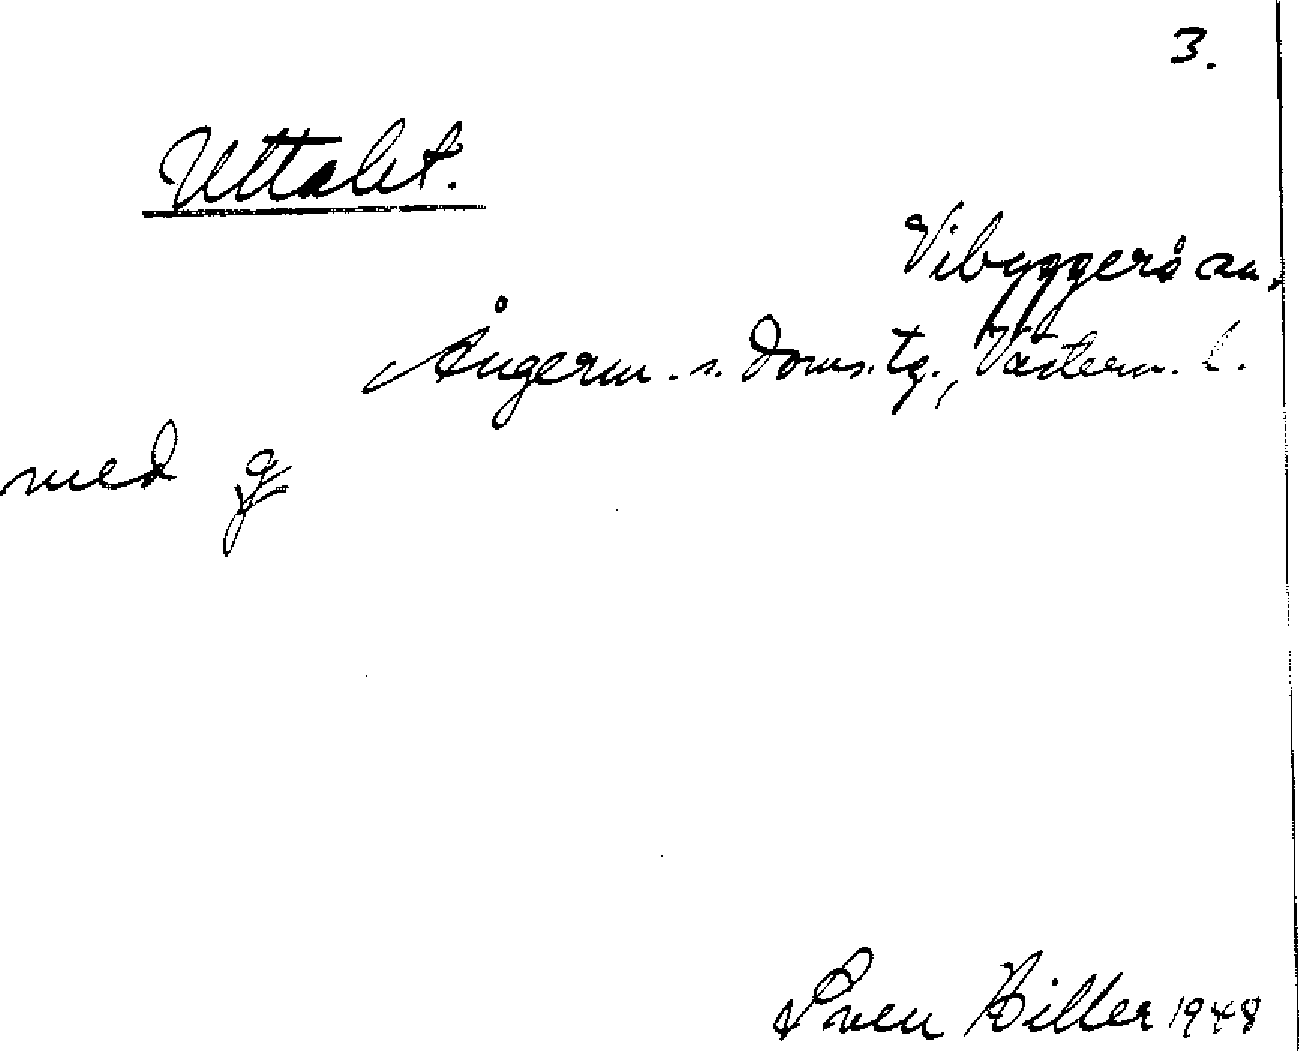 3.
Uttalet.
Vibyggerå sn,
Ångerm. s. doms.tg., Västern. l.
med g
Sven Hiller 1948